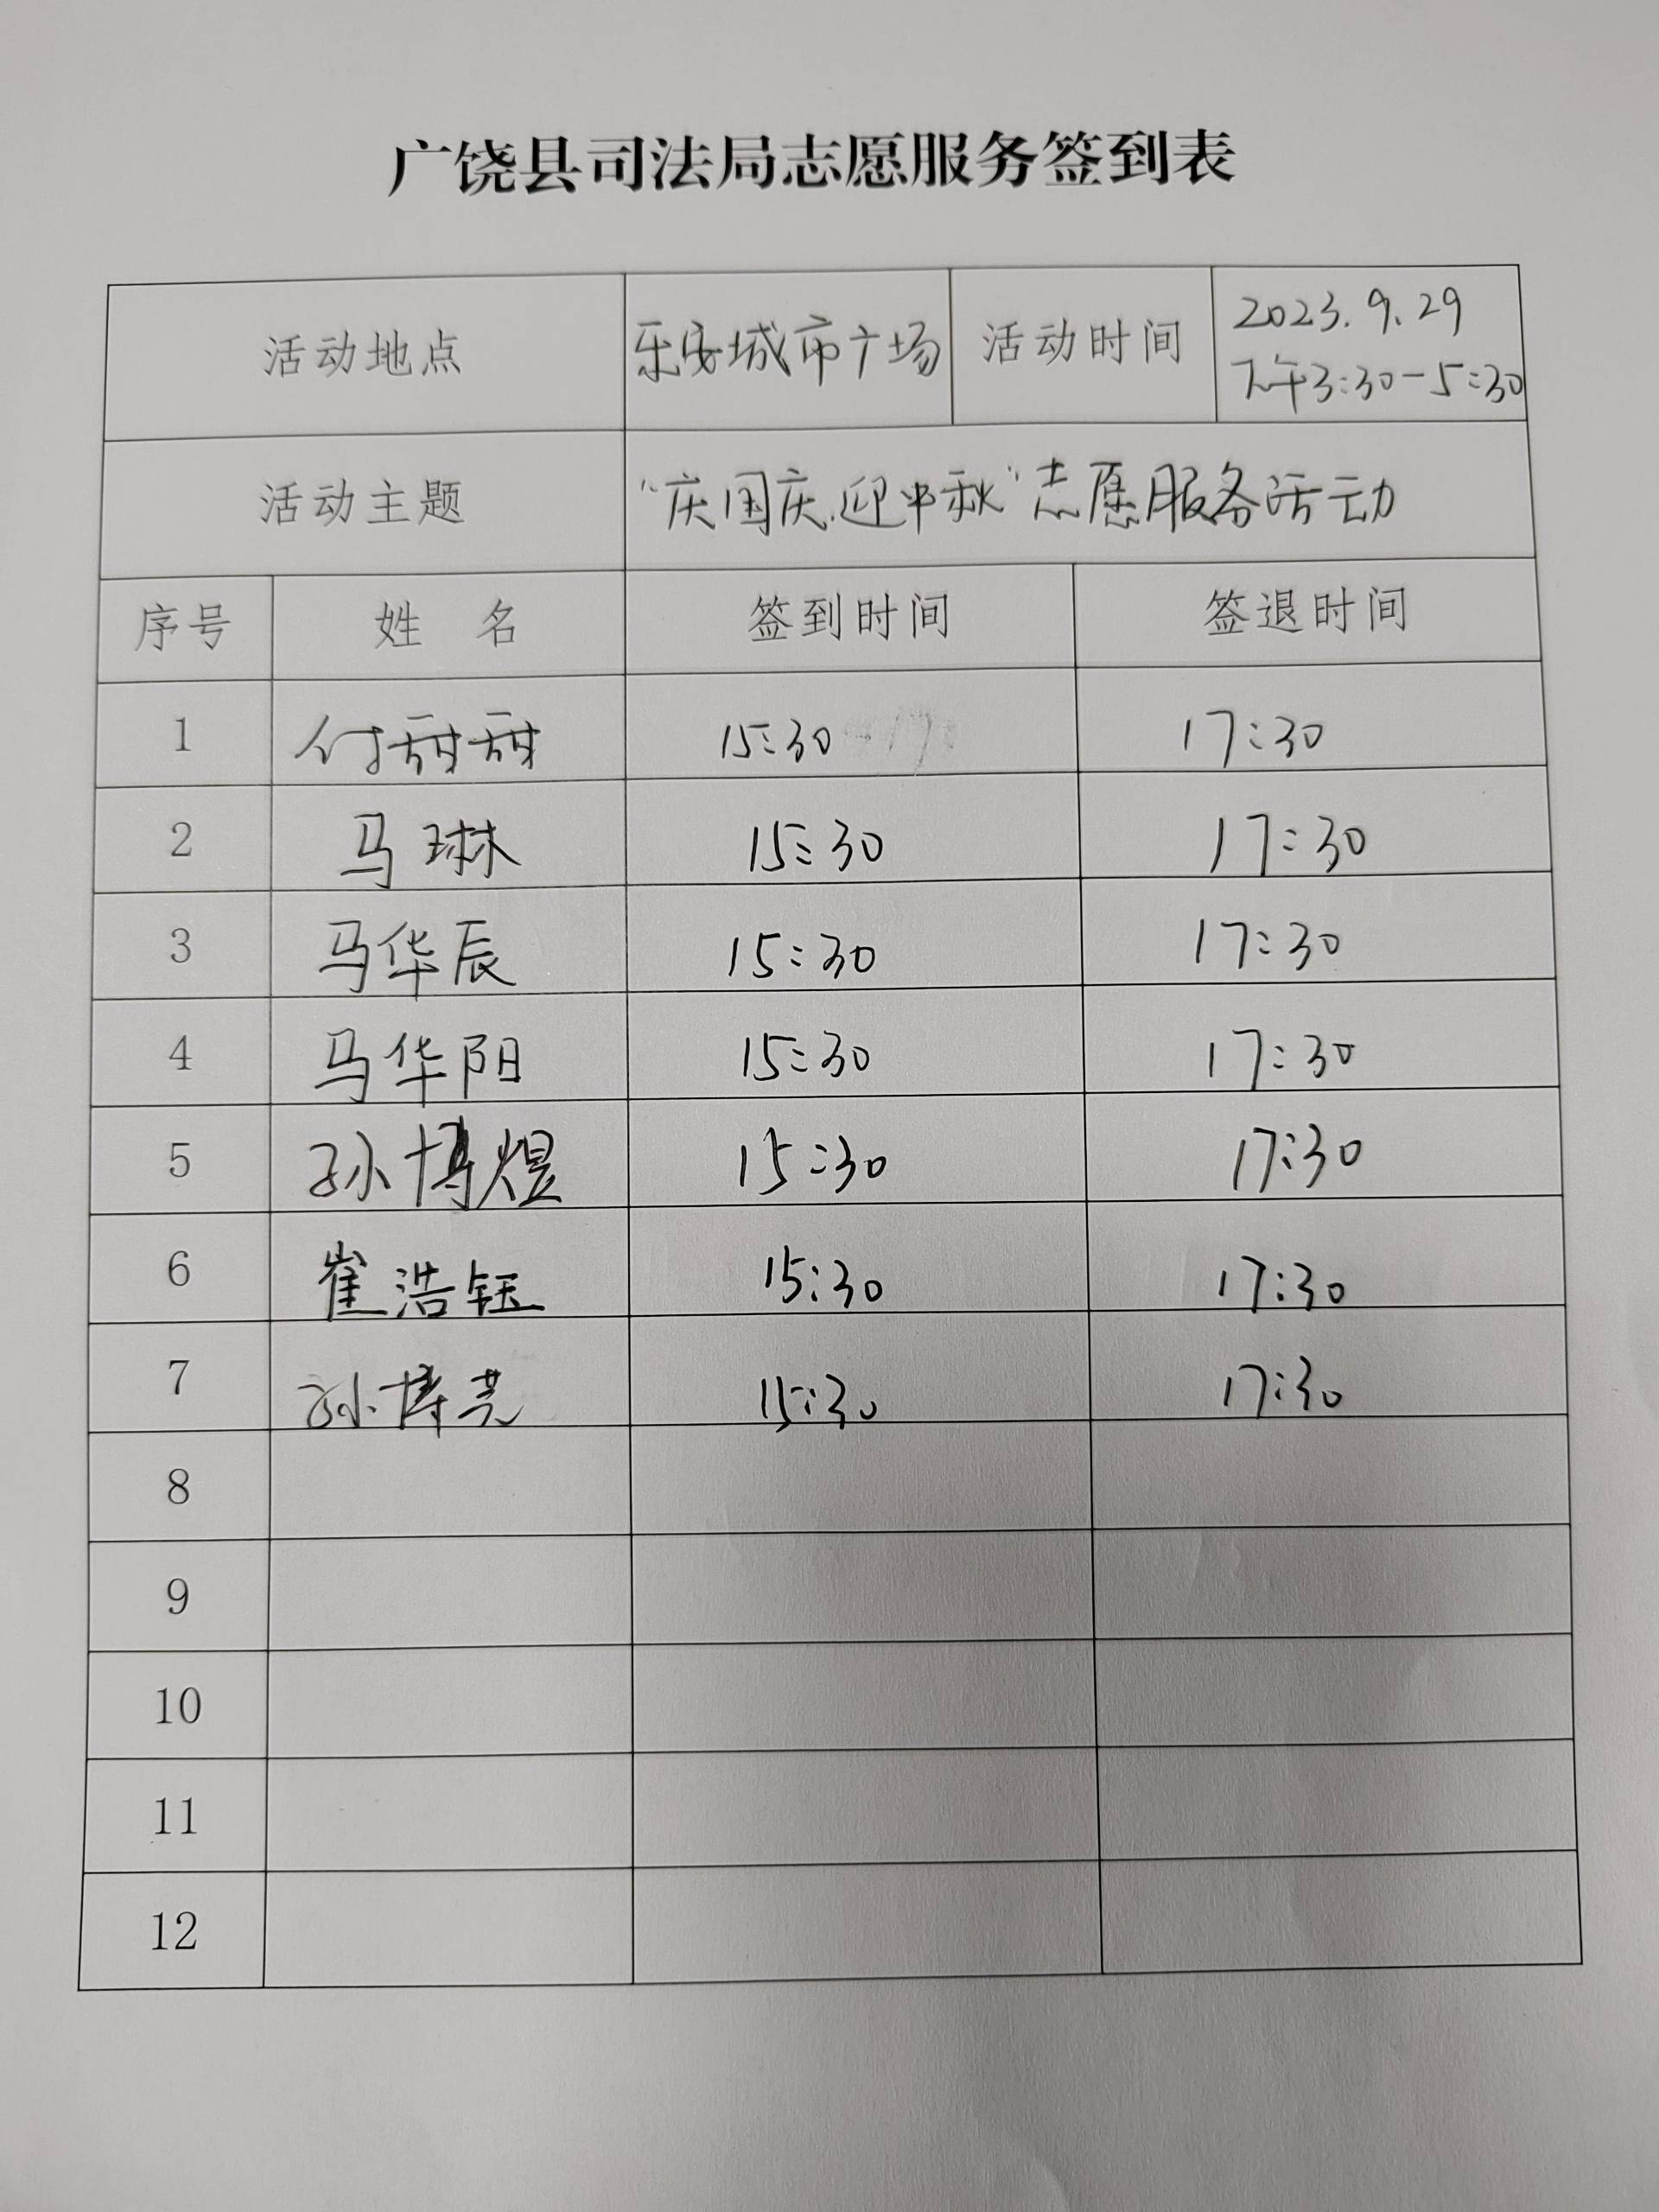 广饶县司法局志愿服务签到表
活动地点 乐安城市广场 活动时间 2023.9.29
下午3:30-5:30
活动主题 “庆国庆.迎中秋”志愿服务活动
序号 姓 名 签到时间 签退时间
1 付甜甜 15:30 17:30
2 马琳 15:30 17:30
3 马华辰 15:30 17:30
4 马华阳 15:30 17:30
5 孙博煜 15:30 17:30
6 崔浩钰 15:30 17:30
7 孙博 15:30 17:30
8
9
10
11
12